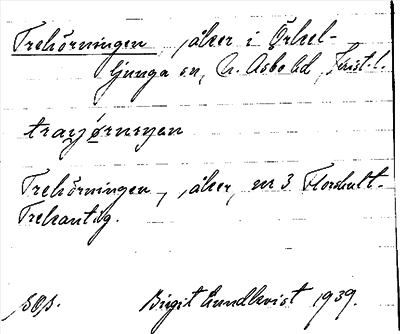 Trehörningen, åker i Örkel-
ljunga sn, N. Åsbo hd, Krist. l.
Trehörningen, åker, nr 3 Florshult.
Trekantig.
Birgit Lundkvist 1939.